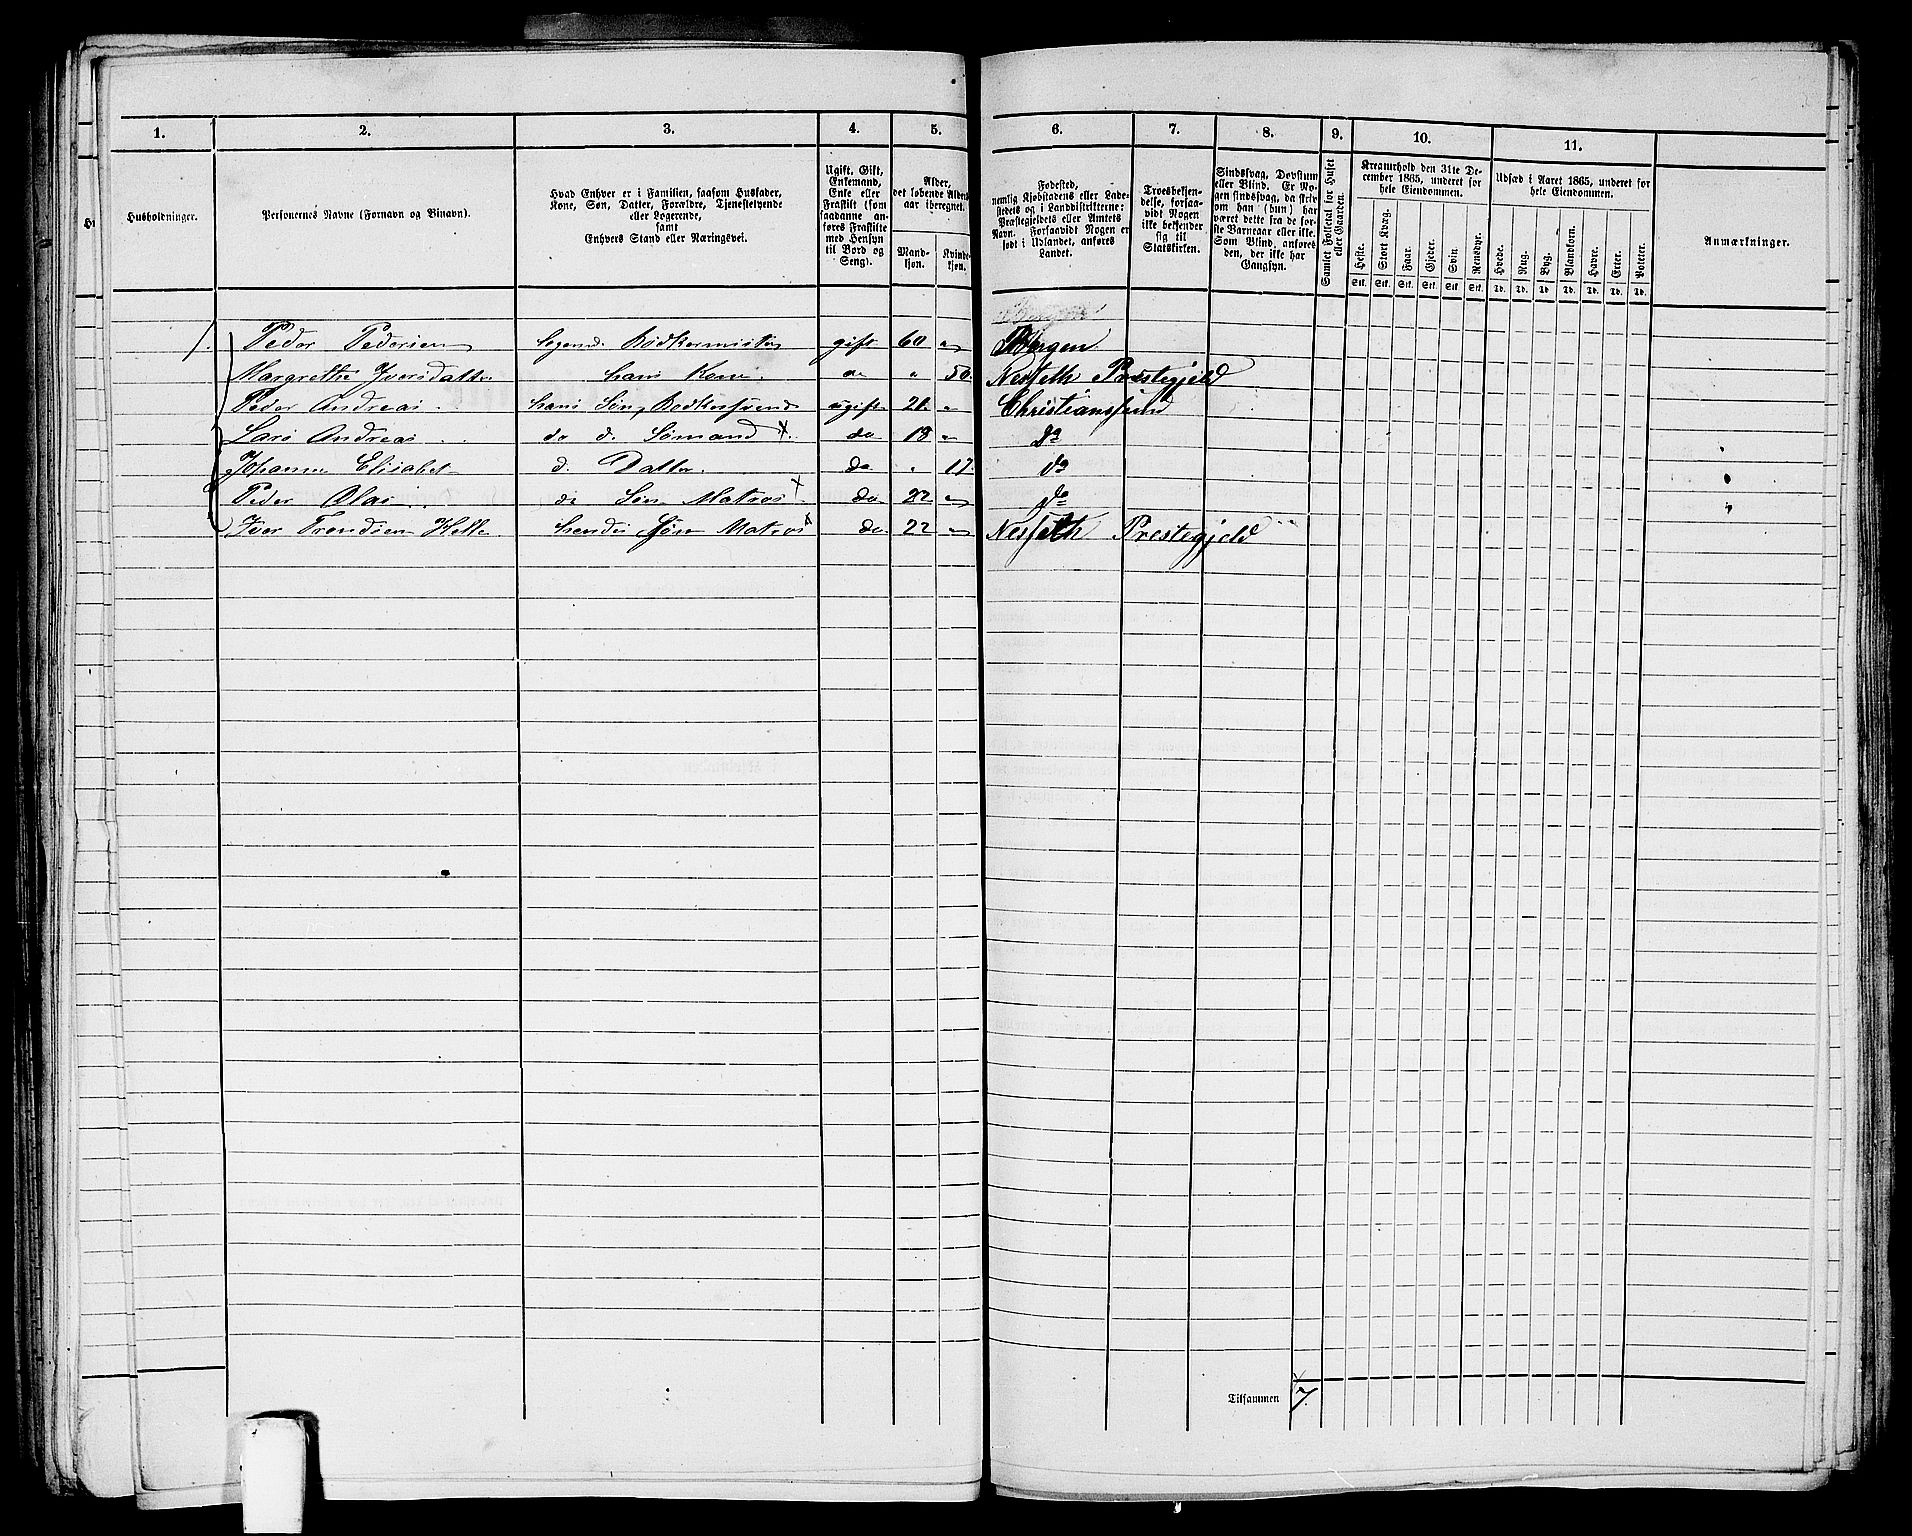 1. 2. 3. 4. 5. 6. 7. 8. 9. 10. 11.
Husholdninger.
Personernes Navne (Fornavn og Binavn).
Hvad Enhver er i Familien, saasom Husfader,
Kone, Søn, Datter, Forældre, Tjenestetyende
eller Logerende,
samt
Enhvers Stand eller Næringsvei.
Ugift, Gift,
Enkemand,
Enke eller
Fraskilt (som
saadanne an-
føres Fraskilte
med Hensyn
til Bord og
Seng).
Alder,
det løbende Alders-
aar iberegnet.
Mand-
kjøn.
Kvinde-
kjøn.
Fødested,
nemlig Kjøbstadens eller Lade-
stedets og i Landdistrikterne:
Præstegjeldets eller Amtets
Navn. Forsaavidt Nogen er
født i Udlandet, anføres
Landet.
Troesbekjen-
delse, forsaa-
vidt Nogen
ikke bekjender
sig til
Statskirken.
Sindssvag, Døvstum
eller Blind. Er No-
gen sindssvag, da skriv
om han (hun) har
været dette fra de før-
ste Barneaar eller ikke.
Som Blind, anføres
den, der ikke har
Gangsyn.
Samlet Folketal for Huset
eller Gaarden.
Kreaturhold den 31te De-
cember 1865, underet for
hele Eiendommen.
Heste. Stort Kvæg. Faar. Gjeder. Svin. Rensdyr.
Stk. Stk. Stk. Stk. Stk. Stk.
Udsæd i Aaret 1865, underet for
hele Eiendommen.
Hvede. Rug. Byg. Blandkorn. Havre. Erter. Poteter.
Td. Td. Td. Td. Td. Td. Td.
Anmærkninger.
1. Peder Pedersen Logerende Bødkermester gift 60 " Bergen
Margrethe Iversdatter hans Kone do " 50 Nesseth Prestegjeld
Peder Andreas hans Søn, Bødkersvend ugift 21 " Christianssund
Lars Andreas do d. Sømand × do 18 " do
Johanne Elisabet d. Datter do " 17 do
Peder Olai do Søn Matros × do 22 " do
Iver Trondsen Helle hendes Søn Matros × do 22 " Nesseth Prestegjeld
Tilsammen 7.